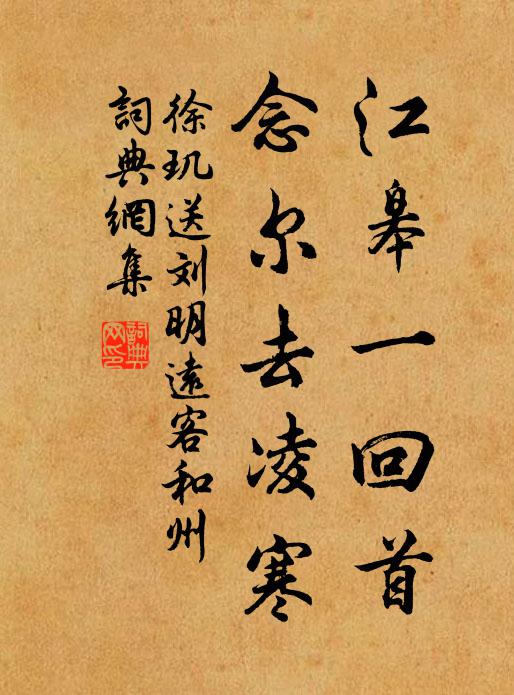 江皋一回首
念尔去凌寒
徐玑送刘明遠客和州
詞典網集
詞典网印